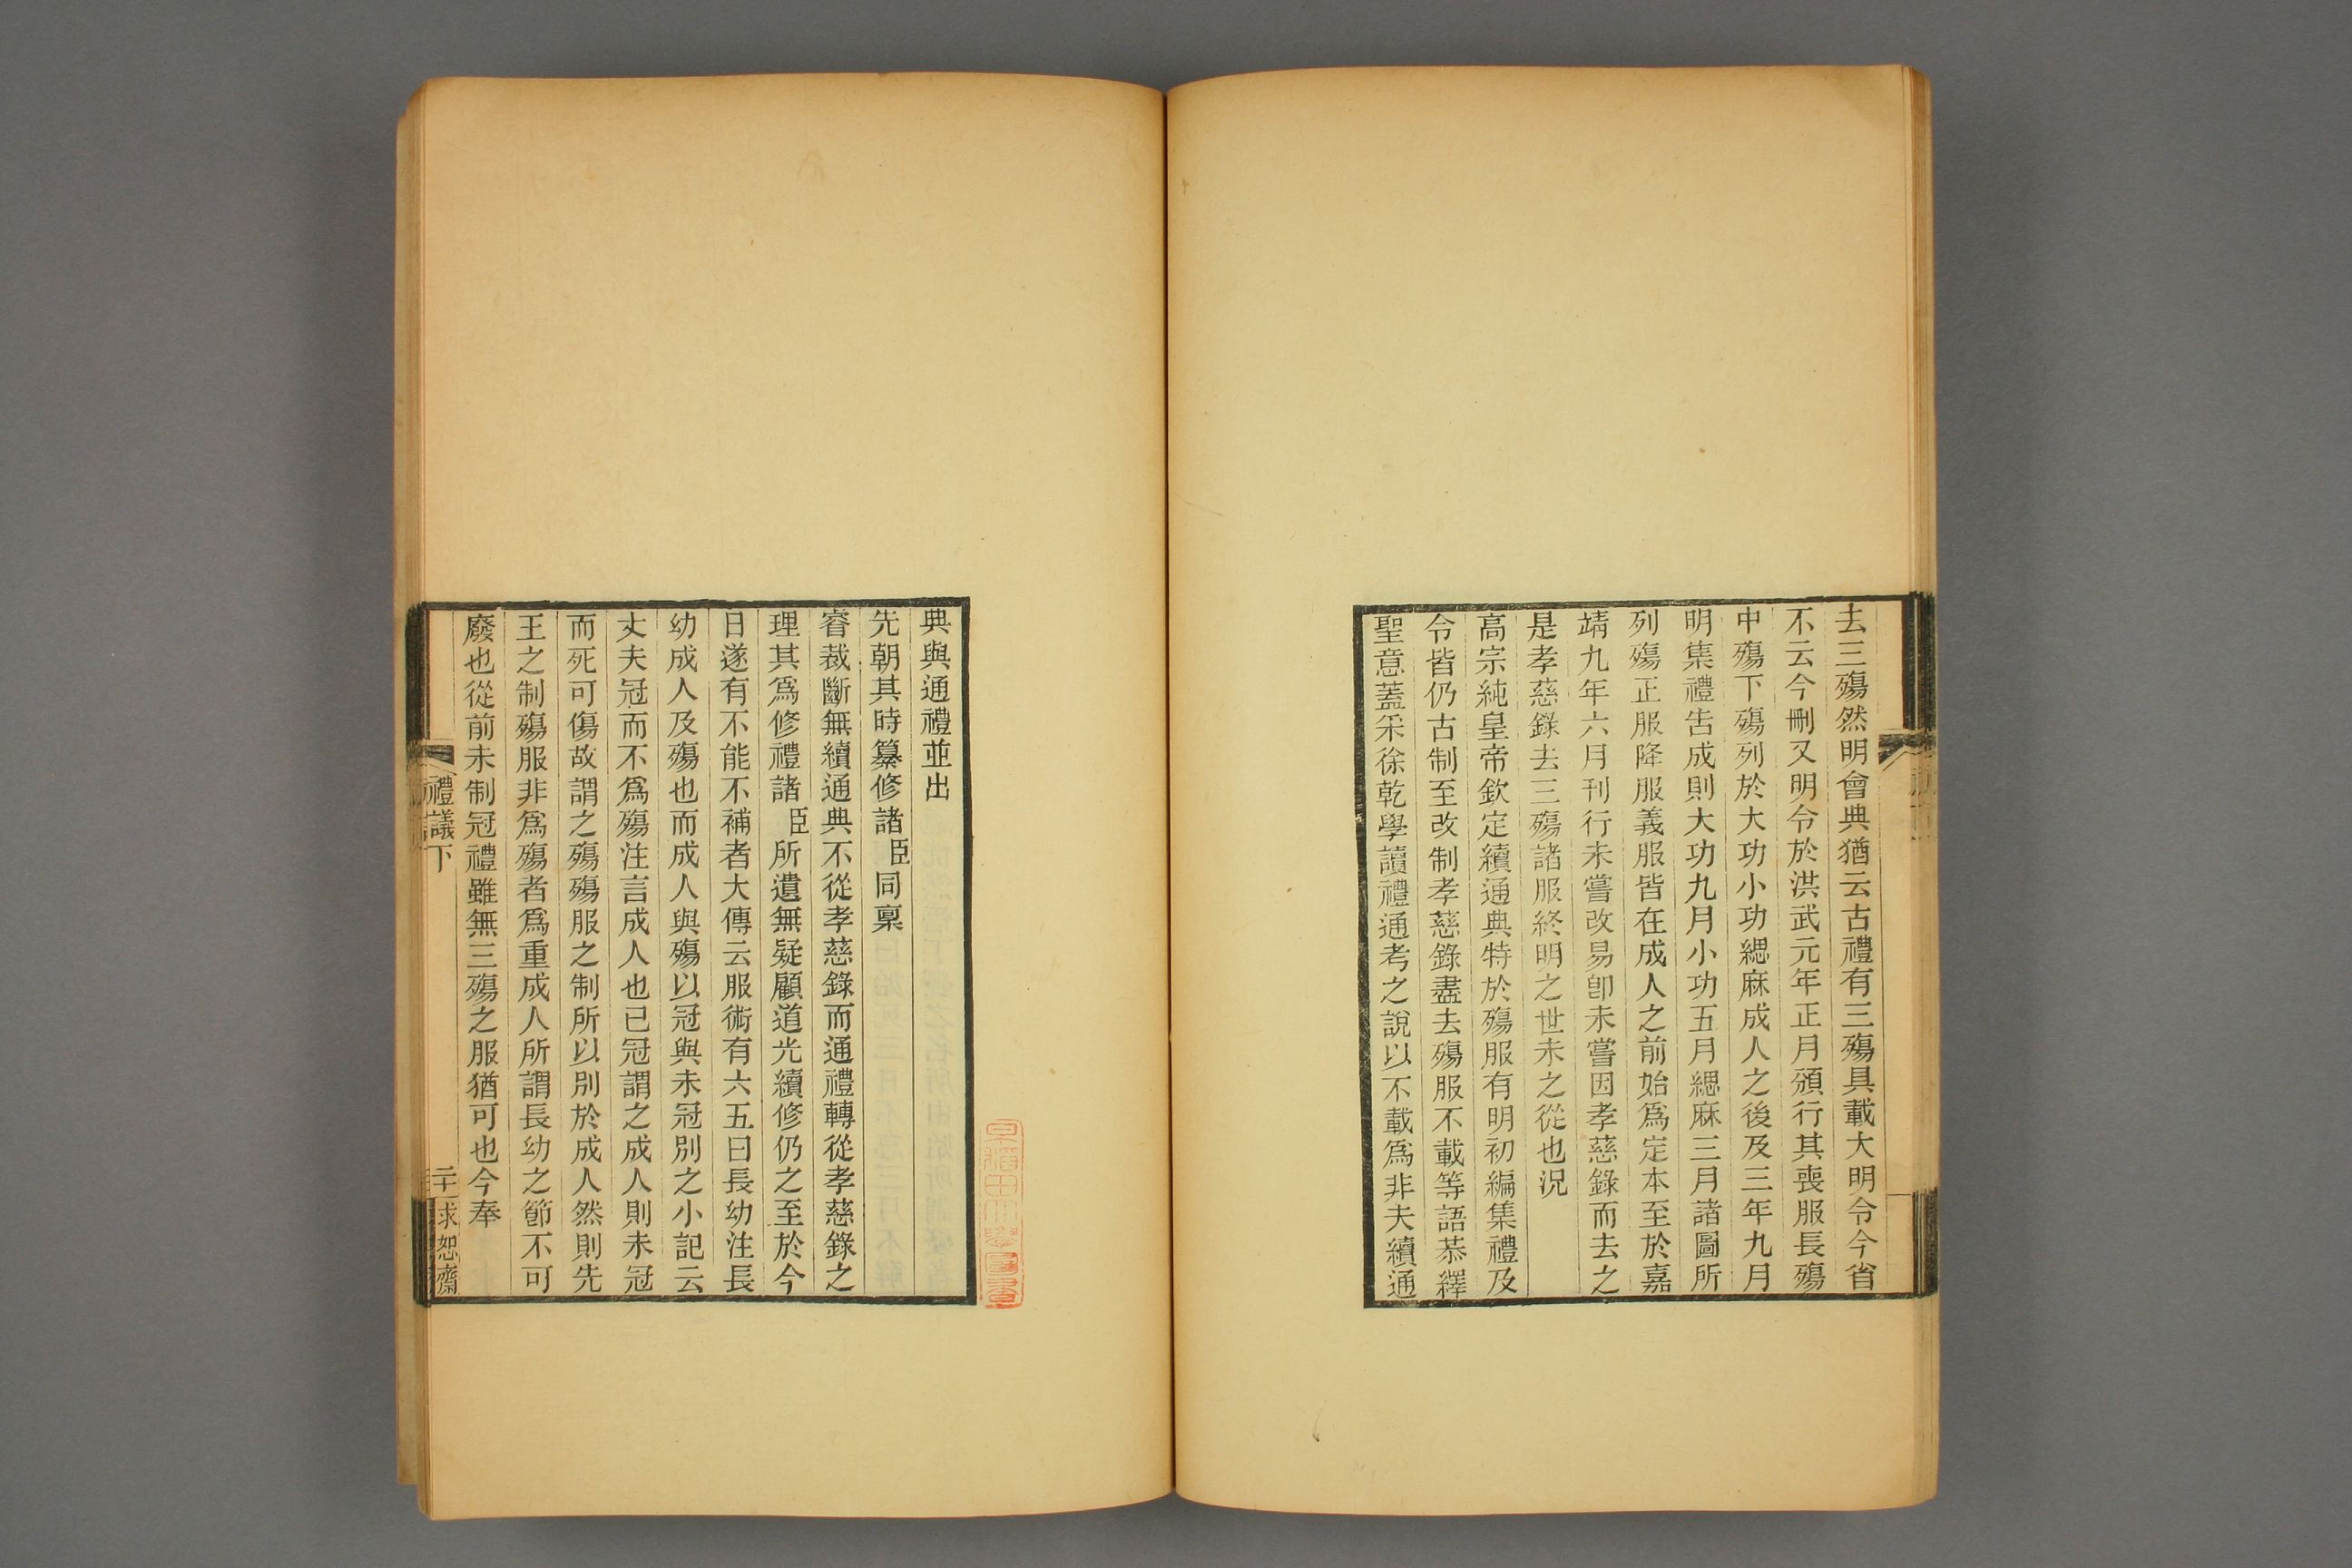 去三殤然明會典猶云古禮有三殤具載大明令今省
不云今刪又明令於洪武元年正月頒行其喪服長殤
中殤下殤列於大功小功緦麻成人之後及三年九月
明集禮告成則大功九月小功五月緦麻三月諸圖所
列殤正服降服義服皆在成人之前始爲定本至於嘉
靖九年六月刊行未嘗改易卽未嘗因孝慈錄而去之
是孝慈錄去三殤諸服終明之世未之從也況
高宗純皇帝欽定續通典特於殤服有明初編集禮及
令皆仍古制至改制孝慈錄盡去殤服不載等語恭繹
聖意蓋采徐乾學讀禮通考之說以不載爲非夫續通
典與通禮並出
先朝其時纂修諸臣同稟
睿裁斷無續通典不從孝慈錄而通禮轉從孝慈錄之
理其爲修禮諸臣所遺無疑顧道光續修仍之至於今
日遂有不能不補者大傳云服術有六五曰長幼注長
幼成人及殤也而成人與殤以冠與未冠別之小記云
丈夫冠而不爲殤注言成人也已冠謂之成人則未冠
而死可傷故謂之殤殤服之制所以別於成人然則先
王之制殤服非爲殤者爲重成人所謂長幼之節不可
廢也從前未制冠禮雖無三殤之服猶可也今奉
禮議下
二十一
求恕齋
早稻田大學圖書